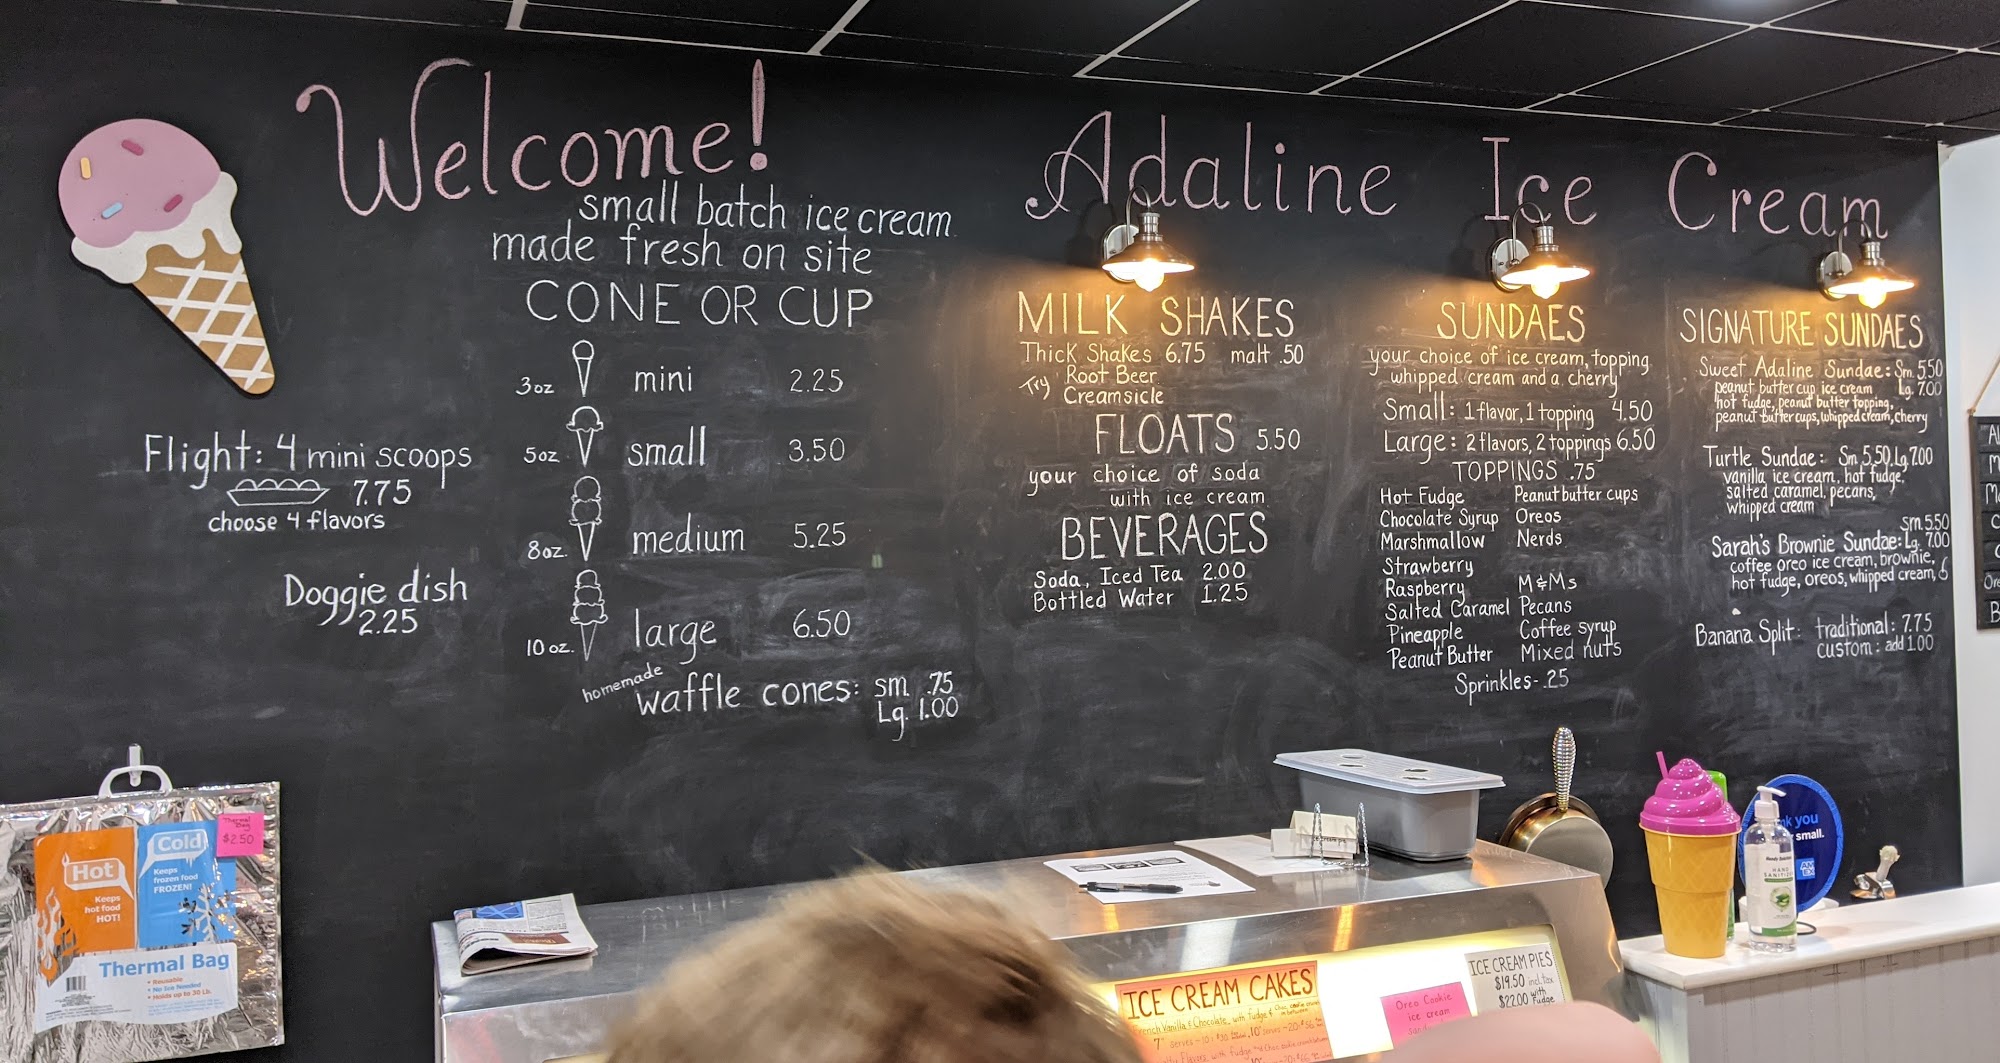 Welcome!
small batch ice cream
made fresh on site
CONE OR CUP
3oz mini 2.25
5oz small 3.50
8oz. medium 5.25
10oz. large 6.50
homemade
waffle cones: sm .75
Lg. 1.00
Flight: 4 mini scoops
7.75
choose 4 flavors
Doggie dish
2.25
Adaline Ice Cream
MILK SHAKES
Thick Shakes 6.75 malt .50
Try Root Beer
Creamsicle
FLOATS 5.50
your choice of soda
with ice cream
BEVERAGES
Soda, Iced Tea 2.00
Bottled Water 1.25
SUNDAES
your choice of ice cream, topping
whipped cream and a cherry
Small: 1 flavor, 1 topping 4.50
Large: 2 flavors, 2 toppings 6.50
TOPPINGS .75
Hot Fudge Peanut butter cups
Chocolate Syrup Oreos
Marshmallow Nerds
Strawberry
Raspberry M&Ms
Salted Caramel Pecans
Pineapple Coffee syrup
Peanut Butter Mixed nuts
Sprinkles - .25
SIGNATURE SUNDAES
Sweet Adaline Sundae: Sm. 5.50
peanut butter cup ice cream Lg. 7.00
hot fudge, peanut butter topping,
peanut butter cups, whipped cream, cherry
Turtle Sundae: Sm 5.50, Lg 7.00
vanilla ice cream, hot fudge,
salted caramel, pecans,
whipped cream
Sm. 5.50
Sarah's Brownie Sundae: Lg. 7.00
coffee oreo ice cream, brownie,
hot fudge, oreos, whipped cream,
Banana Split: traditional: 7.75
custom: add 1.00
Thermal
Bag
$2.50
Hot
Keeps
hot food
HOT!
Cold
Keeps
frozen food
FROZEN!
Thermal Bag
• Reusable
• No Ice Needed
• Holds up to 30 Lb.
ICE CREAM CAKES
French Vanilla & Chocolate with fudge &
Oreo Cookie
ice cream
ICE CREAM PIES
$19.50 incl. tax
$22.00 with
fudge
HAND
SANITIZER
you
small.
AM
EX